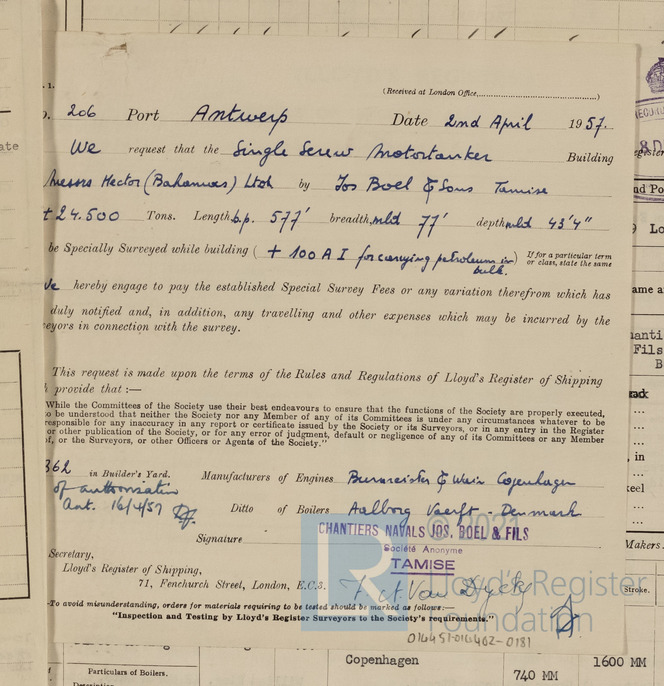 (Received at London Office,....................)
206 Port Antwerp Date 2nd April 1957.
We request that the Single Screw Motortanker Building
Messrs Hector (Bahamas) Ltd by Jos Boel & Sons Tamise
± 24.500 Tons. Length b.p. 577' breadth mld 77' depth mld 43'4"
be Specially Surveyed while building ( + 100 A I for carrying petroleum in bulk. ) If for a particular term or class, state the same
We hereby engage to pay the established Special Survey Fees or any variation therefrom which has
duly notified and, in addition, any travelling and other expenses which may be incurred by the
veyors in connection with the survey.
This request is made upon the terms of the Rules and Regulations of Lloyd's Register of Shipping
h provide that :—
"While the Committees of the Society use their best endeavours to ensure that the functions of the Society are properly executed,
to be understood that neither the Society nor any Member of any of its Committees is under any circumstances whatever to be
responsible for any inaccuracy in any report or certificate issued by the Society or its Surveyors, or in any entry in the Register
or other publication of the Society, or for any error of judgment, default or negligence of any of its Committees or any Member
of, or the Surveyors, or other Officers or Agents of the Society."
362 in Builder's Yard. Manufacturers of Engines Burmeister & Wain Copenhagen
of authorisation
Ant. 16/4/57 Ditto of Boilers Aalborg Vaerft - Denmark
© 2021
CHANTIERS NAVALS JOS. BOEL & FILS
Signature
Société Anonyme
TAMISE
Secretary,
Lloyd's Register of Shipping,
71, Fenchurch Street, London, E.C.3.
Lloyd's Register
Foundation
-To avoid misunderstanding, orders for materials requiring to be tested should be marked as follows:—
"Inspection and Testing by Lloyd's Register Surveyors to the Society's requirements."
016451-016462-0181
Copenhagen
Particulars of Boilers.
740 MM
1600 MM
Stroke.
Makers